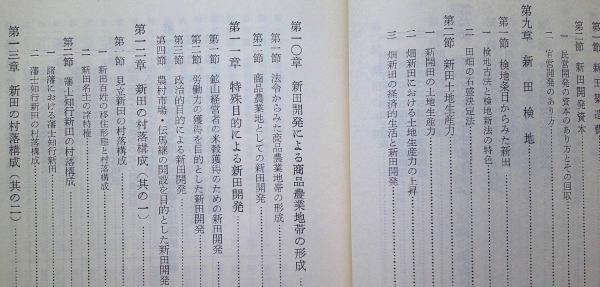 第三節 新田開発資本
一 民営開発の資本のあり方とその回収
二 官営開発のあり方
第九章 新田検地
第一節 検地条目からみた新田
一 検地古法と検地新法の特色
二 田畑の石盛決定法
第二節 新田土地生産力
一 新開田の土地生産力
二 畑新田における土地生産力の上昇
三 畑新田の経済的生活と新田開発
第一〇章 新田開発による商品農業地帯の形成
第一節 法令からみた商品農業地帯の形成
第二節 商品農業地としての新田開発
第一一章 特殊目的による新田開発
第一節 鉱山経営者の米穀獲得のための新田開発
第二節 労働力の獲得を目的とした新田開発
第三節 政治的目的による新田開発
第四節 農村市場・伝馬継の開設を目的とした新田開発
第一二章 新田の村落構成（其の一）
第一節 見立新田の村落構成
一 新田百姓の移住形態と村落構成
二 新田名主の諸特権
第二節 藩士知行新田の村落構成
一 諸藩における藩士知行新田
二 藩士知行新田の村落構成
第一三章 新田の村落構成（其の二）